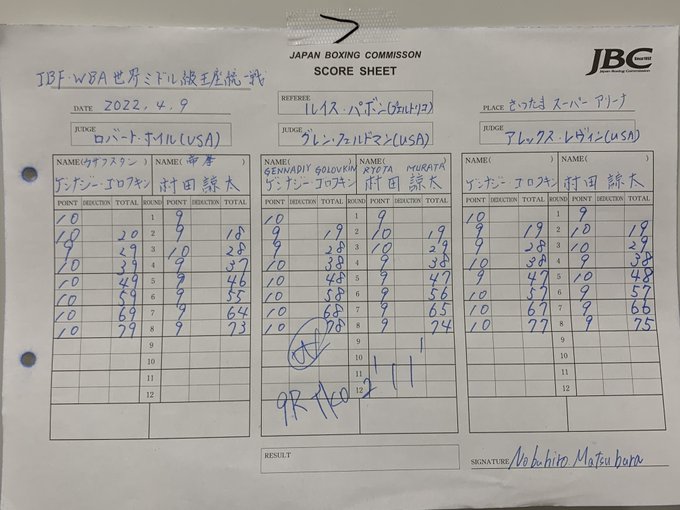 JAPAN BOXING COMMISSON
SCORE SHEET
JBC
Since1952
Japan Boxing Commission
IBF・WBA世界ミドル級王座統一戦
DATE 2022.4.9
REFEREE ルイス・パボン(プエルトリコ)
PLACE さいたまスーパーアリーナ
JUDGE ロバート・ホイル(USA)
JUDGE グレン・フェルドマン(USA)
JUDGE アレックス・レヴィン(USA)
NAME(カザフスタン) NAME(帝拳) NAME(GENNADIY GOLOVKIN) NAME(RYOTA MURATA) NAME( ) NAME( )
ゲンナジー・ゴロフキン 村田諒太 ゲンナジー・ゴロフキン 村田諒太 ゲンナジー・ゴロフキン 村田諒太
POINT DEDUCTION TOTAL ROUND POINT DEDUCTION TOTAL POINT DEDUCTION TOTAL ROUND POINT DEDUCTION TOTAL POINT DEDUCTION TOTAL ROUND POINT DEDUCTION TOTAL
10 1 9 10 1 9 10 1 9
10 20 2 9 18 9 19 2 10 19 9 19 2 10 19
9 29 3 10 28 9 28 3 10 29 9 28 3 10 29
10 39 4 9 37 10 38 4 9 38 10 38 4 9 38
10 49 5 9 46 10 48 5 9 47 9 47 5 10 48
10 59 6 9 55 10 58 6 9 56 10 57 6 9 57
10 69 7 9 64 10 68 7 9 65 10 67 7 9 66
10 79 8 9 73 10 78 8 9 74 10 77 8 9 75
9 9 9
10 10 10
11 11 11
12 12 12
9R TKO 2'11'
RESULT
SIGNATURE Nobuhiro Matsubara